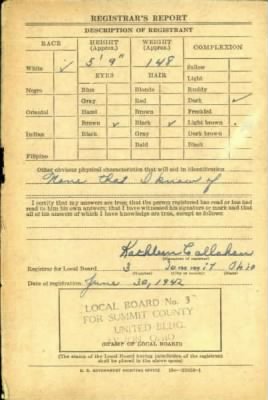 REGISTRAR'S REPORT
DESCRIPTION OF REGISTRANT
RACE HEIGHT (Approx.) WEIGHT (Approx.) COMPLEXION
White ✓ 5' 9" 148 Sallow
EYES HAIR Light
Negro Blue Blonde Ruddy
Gray Red Dark ✓
Oriental Hazel Brown Freckled
Brown ✓ Black ✓ Light brown
Indian Black Gray Dark brown
Bald Black
Filipino
Other obvious physical characteristics that will aid in identification
None that I know of
I certify that my answers are true; that the person registered has read or has had
read to him his own answers; that I have witnessed his signature or mark and that
all of his answers of which I have knowledge are true, except as follows:
Kathleen Callahan
(Signature of registrar)
Registrar for Local Board 3 Summit Ohio
(Number) (City or county) (State)
Date of registration June 30, 1942
LOCAL BOARD No. 3
FOR SUMMIT COUNTY
UNITED BLDG.
AKRON, OHIO
(STAMP OF LOCAL BOARD)
(The stamp of the Local Board having jurisdiction of the registrant
shall be placed in the above space.)
U. S. GOVERNMENT PRINTING OFFICE